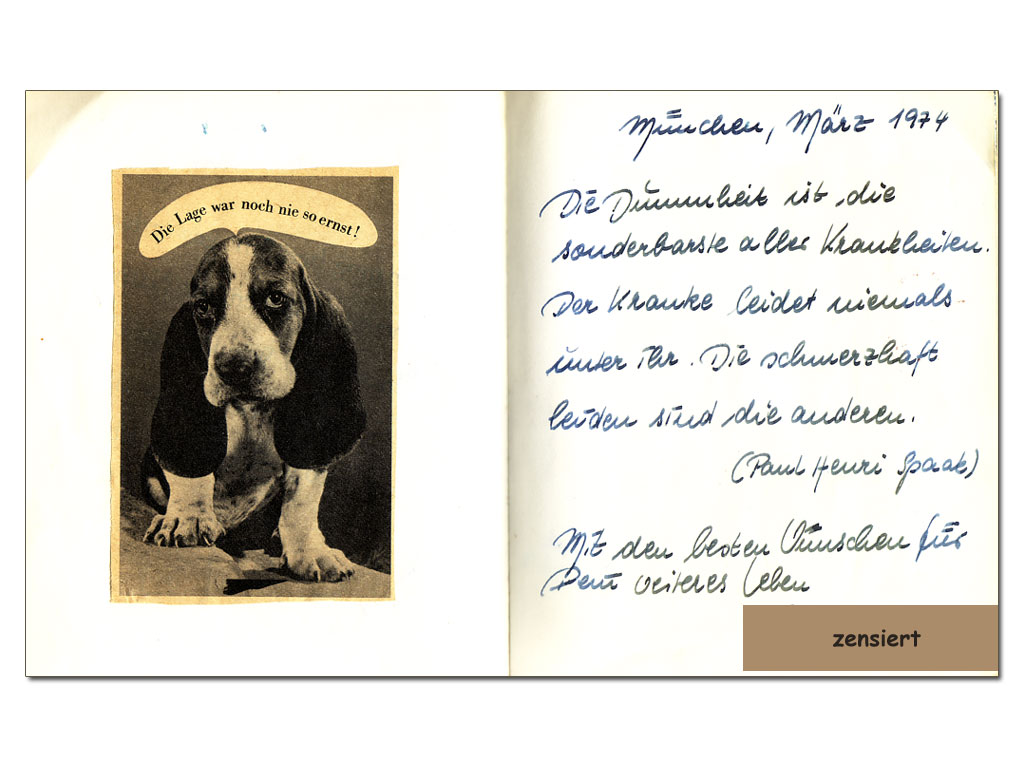 Die Lage war noch nie so ernst!
München, März 1974
Die Dummheit ist die
sonderbarste aller Krankheiten.
Der Kranke leidet niemals
unter ihr. Die schmerzhaft
leiden sind die anderen.
(Paul Henri Spaak)
Mit den besten Wünschen für
Dein weiteres Leben
zensiert